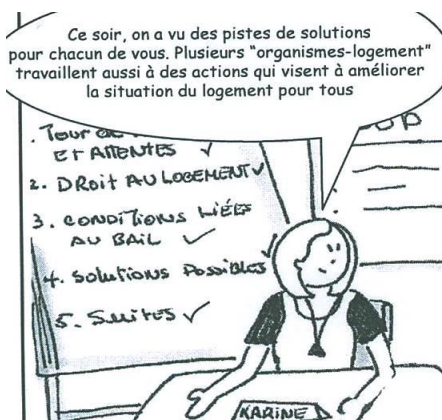 Ce soir, on a vu des pistes de solutions
pour chacun de vous. Plusieurs "organismes-logement"
travaillent aussi à des actions qui visent à améliorer
la situation du logement pour tous
. Tour de
ET ATTENTES ✓
2. DROIT AU LOGEMENT ✓
3. CONDITIONS LIÉES
AU BAIL ✓
4. Solutions Possibles ✓
5. Suites ✓
KARINE